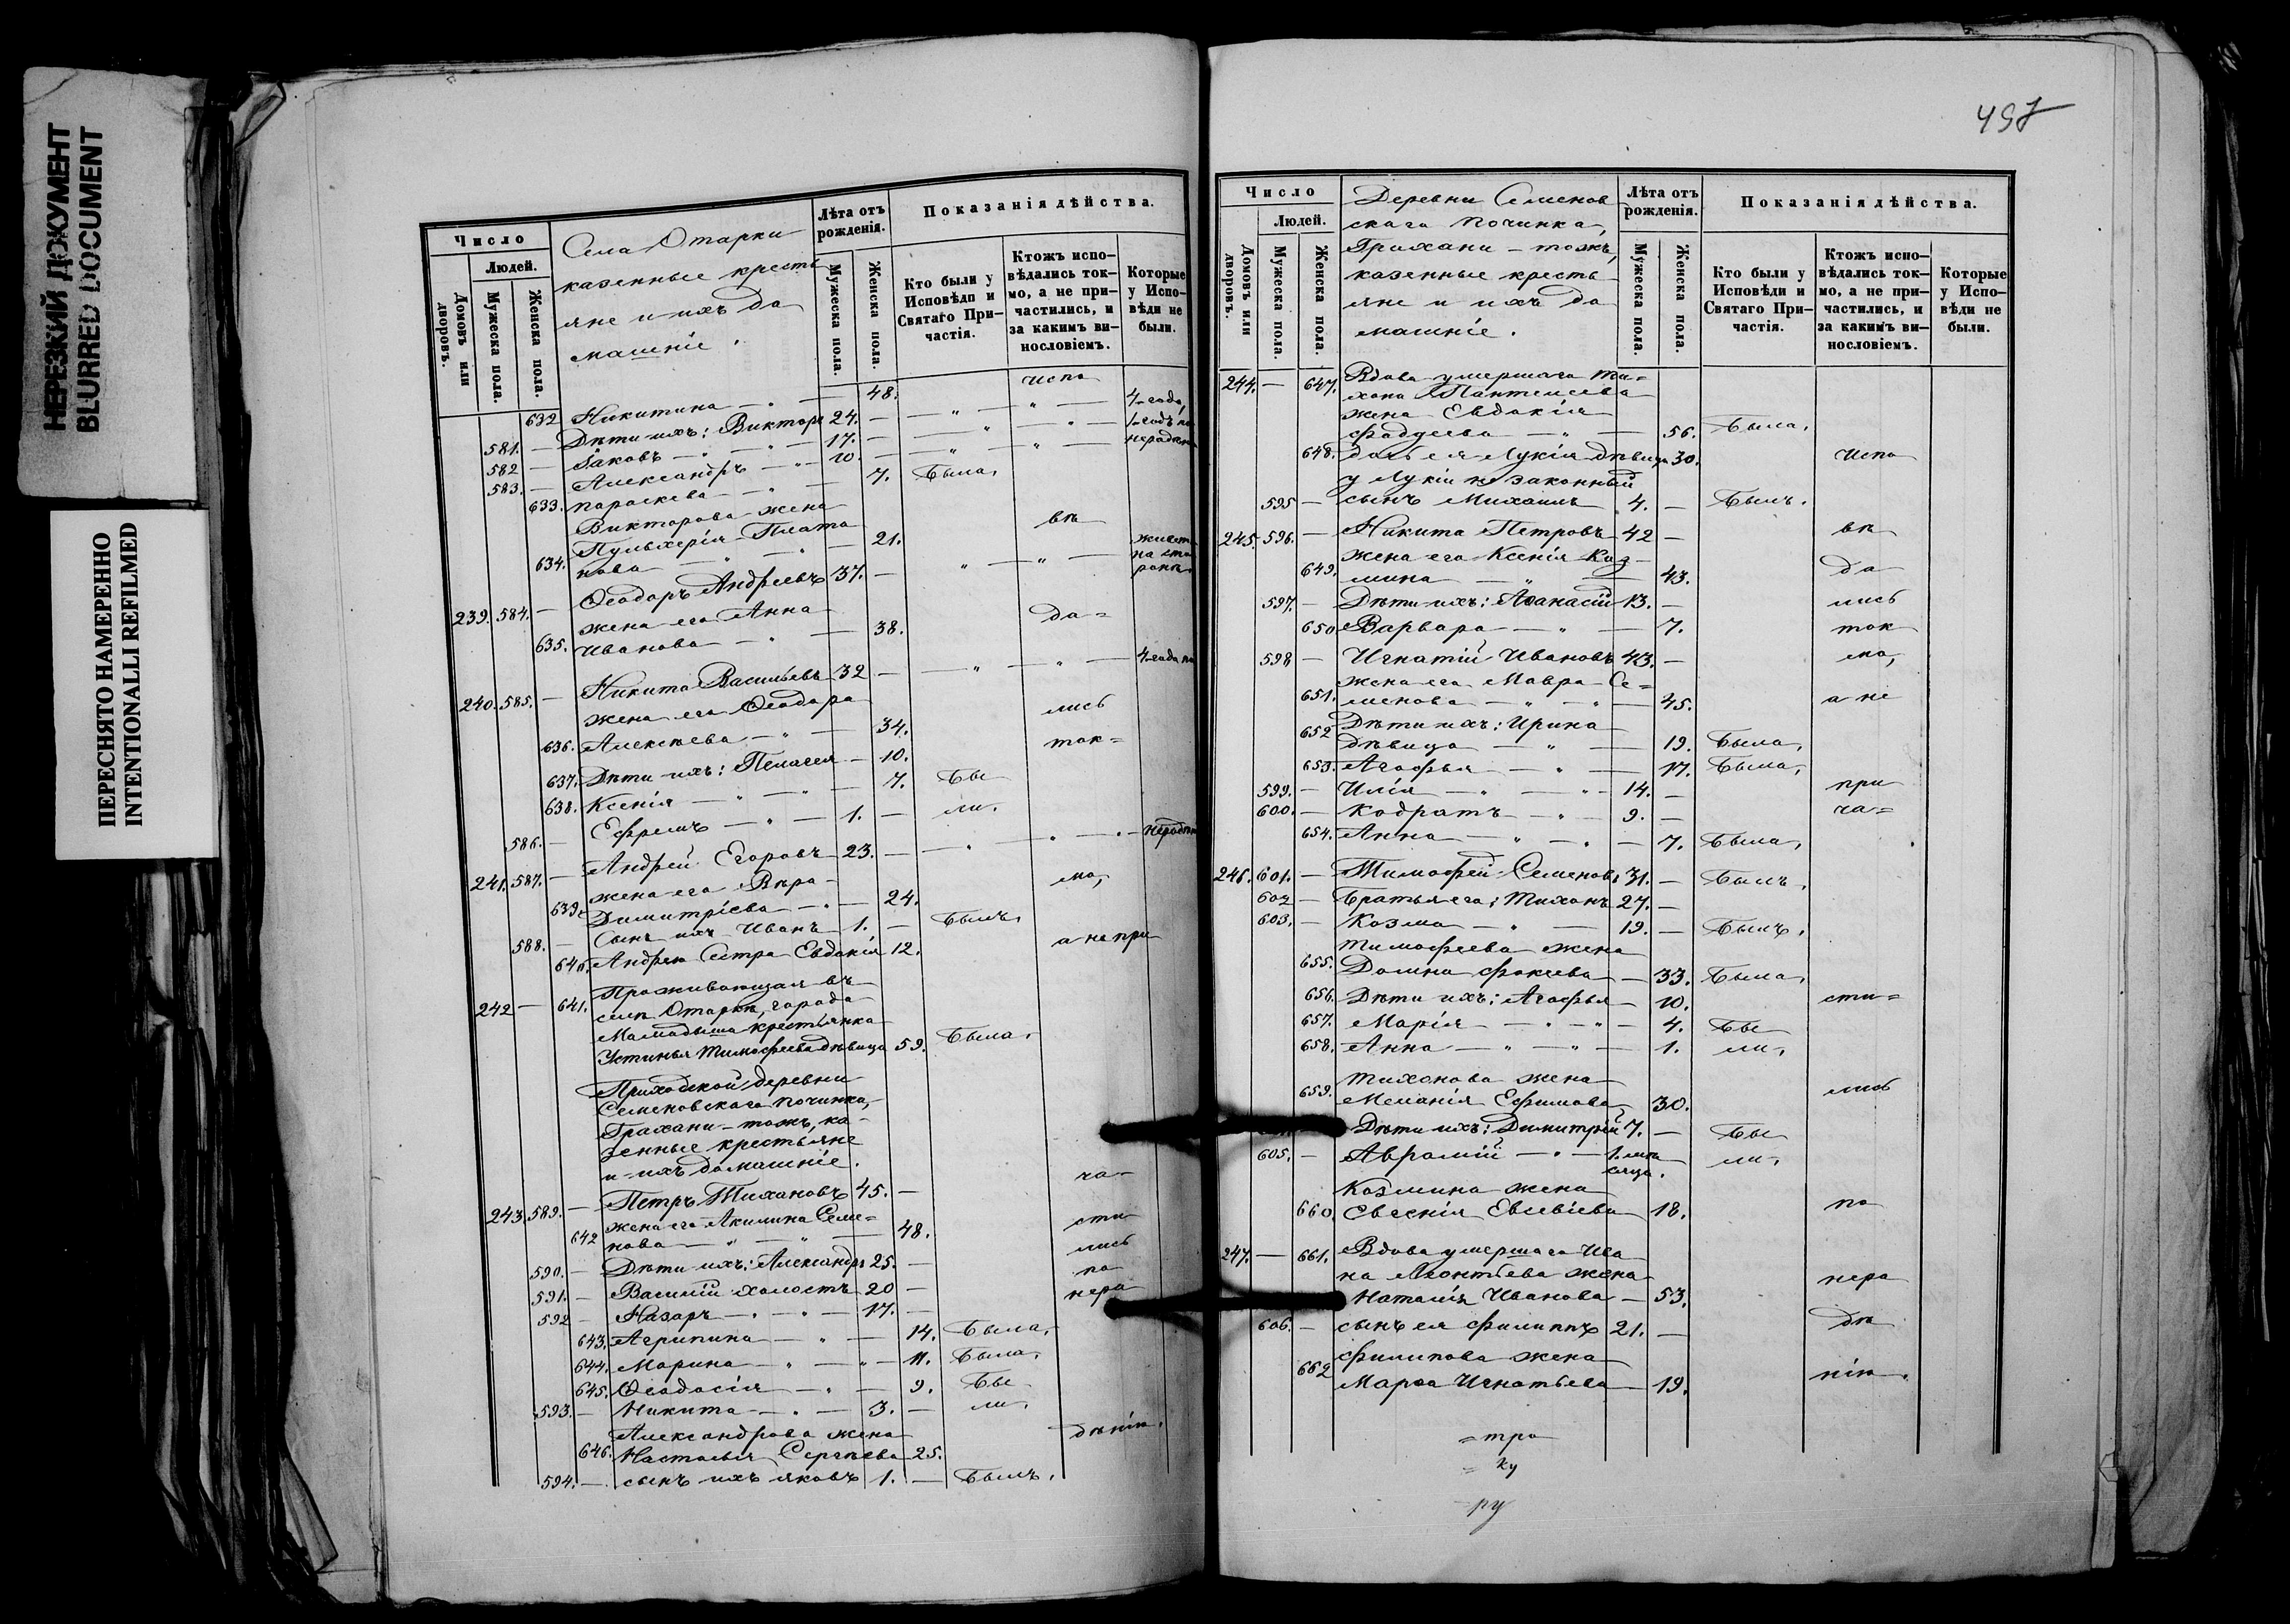 НЕРЕЗКИЙ ДОКУМЕНТ
BLURRED DOCUMENT
ПЕРЕСНЯТО НАМЕРЕННО
INTENTIONALLI REFILMED
Число
Людей.
Домовъ или дворовъ.
Мужеска пола.
Женска пола.
Села Отарки
казенные кресть
яне и ихъ до
машніе.
Лѣта отъ рожденія.
Мужеска пола.
Женска пола.
Показанія дѣйства.
Кто были у Исповѣди и Святаго Причастія.
Ктожъ исповѣдались токмо, а не причастились, и за какимъ винословіемъ.
Которые у Исповѣди не были.
632 Никитина — 48. испо
581. — Дѣти ихъ: Викторъ 24. — 4 года,
582 — Іаковъ — 17. — 1 годъ по
583. — Александръ — 10. — нерадѣн
633. Параскева — 7. Была,
Викторова жена
634. Пульхерія Плато
нова — 21. вѣ
239. 584. — Ѳеодоръ Андреевъ 37. — живетъ на сто ронѣ.
жена его Анна
635. Иванова — 38. да=
240. 585. — Никита Васильевъ 32 — 4 года по
жена его Ѳеодора
636. Алексѣева — 34. лись
637. Дѣти ихъ: Пелагея — 10. ток=
638. Ксенія — 7. Бы
586. — Ефремъ — 1. — ли.
241. 587. — Андрей Егоровъ 23. — нерадѣн
жена его Вѣра
639. Димитріева — 24. мо,
588. — Сынъ ихъ Иванъ 1. — Былъ,
640. Андрея Сестра Евдокія 12. а не при
242 — 641. Проживающая въ
селѣ Отаркѣ, города
Мамадыша крестьянка
Устинья Тимофеева дѣвица 59. Была.
Приходской деревни
Семеновскаго починка,
Грахани-тожъ, ка-
зенные крестьяне
и ихъ домашніе.
243. 589. — Петръ Тихановъ 45. — ча-
642 жена его Акилина Семе=
нова — 48. сти
590. — Дѣти ихъ: Александръ 25. — лись
591. — Василій холостъ 20 — по
592 — Назаръ — 17. — нера
643. Агрипина — 14. Была,
644. Марина — 11. Была,
645. Ѳеодосія — 9. Бы
593. — Никита — 3. — ли,
Александрова жена
646. Настасья Сергѣева 25. дѣнію.
594. — сынъ ихъ яковъ 1. — Былъ,
497
Число
Людей.
Домовъ или дворовъ.
Мужеска пола.
Женска пола.
Деревни Семенов
скаго Починка,
Грахани-тожъ,
казенные кресть-
яне и ихъ до
машніе.
Лѣта отъ рожденія.
Мужеска пола.
Женска пола.
Показанія дѣйства.
Кто были у Исповѣди и Святаго Причастія.
Ктожъ исповѣдались токмо, а не причастились, и за какимъ винословіемъ.
Которые у Исповѣди не были.
244. — 647. Вдова умершаго Ти=
хона Пантелеева
жена Евдокія
Фадѣева — 56. Была,
648. дочь ея Лукія дѣвица 30. испо
у Лукіи незаконный
595 — сынъ Михаилъ 4. — Былъ.
245. 596. — Никита Петровъ 42 — вѣ
жена его Ксенія Коз-
649. мина — 43. да
597. — Дѣти ихъ: Аѳанасій 13. — лись
650 Варвара — 7. ток
598 — Игнатій Ивановъ 43. — мо,
жена его Мавра Се=
651. менова — 45. а не
652 Дѣти ихъ: Ирина
дѣвица — 19. Была,
653. Агафья — 17. Была,
599. — Илія — 14. — при
600. — Кодратъ — 9. — ча=
654. Анна — 7. Была,
246. 601. — Тимофей Семеновъ 31. — Былъ.
602 — Братья его: Тихонъ 27. —
603. — Козма — 19. — Былъ,
Тимофеева жена
655. Домна Фокеева — 33. Была,
656. Дѣти ихъ: Агафья — 10. сти=
657. Марія — 4. Бы
658. Анна — 1. ли,
Тихонова жена
659. Меланія Ефимова 30. лись
Дѣти ихъ: Димитрій 7. — Бы
605. — Аврамій — 1. мѣсяца. ли,
Козмина жена
660. Евгенія Евсевіева 18. по
247. — 661. Вдова умершаго Ива
на Леонтьева жена
Наталія Иванова — 53. нера
606. — сынъ ея Филиппъ 21. — дѣ
Филипова жена
662 Марѳа Игнатьева — 19. нію.
=тра
= ку
-ру